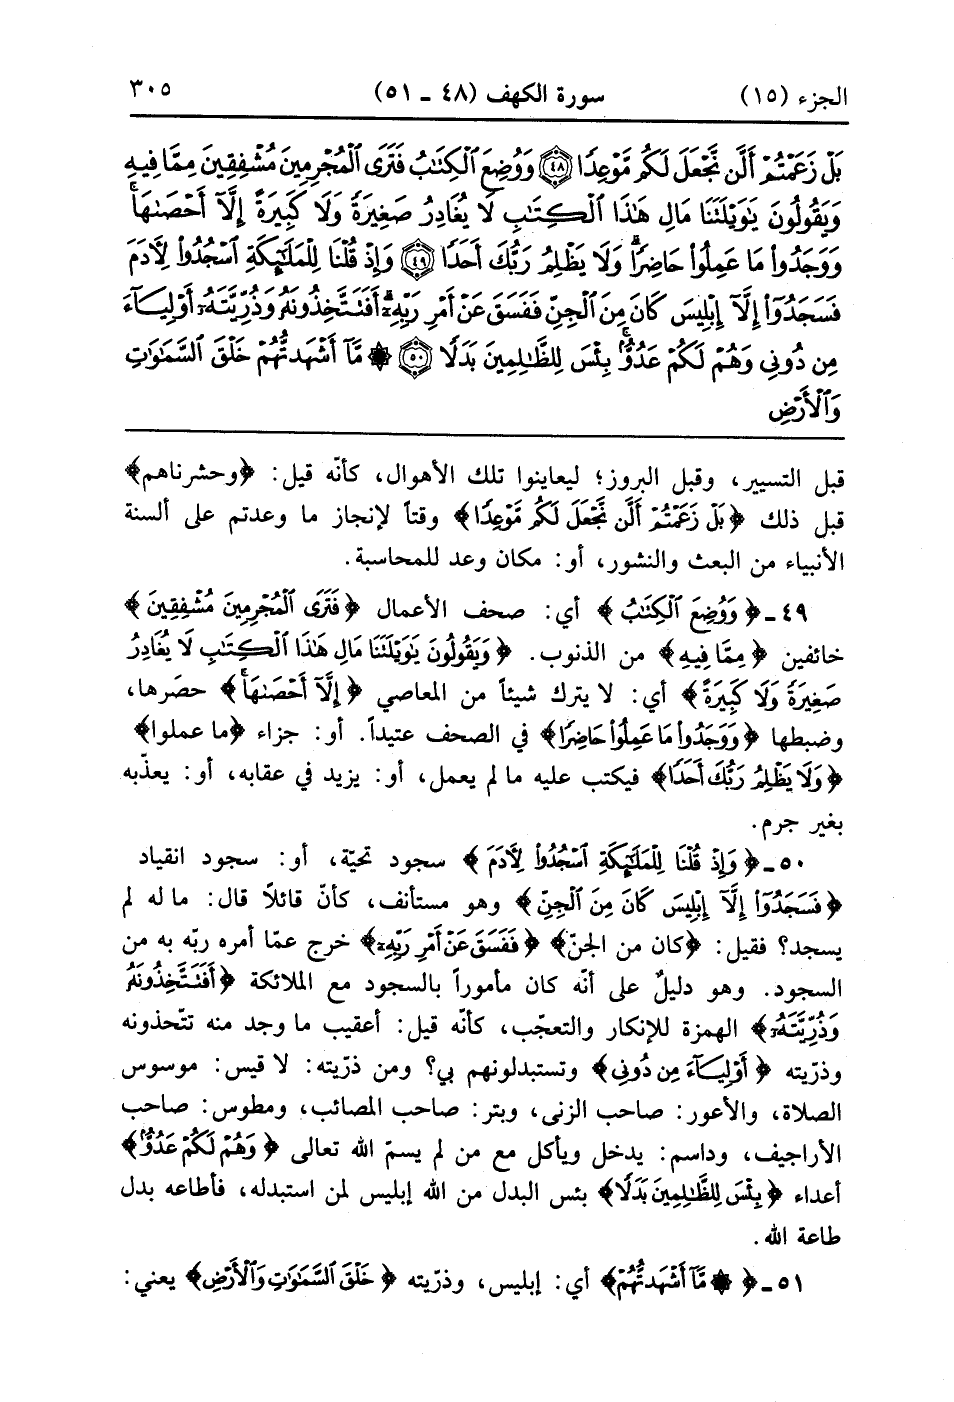 الجزء (١٥) سورة الكهف (٤٨ ـ ٥١) ٣٠٥
بَلْ زَعَمْتُمْ أَلَّن نَّجْعَلَ لَكُم مَّوْعِدًا ﴿٤٨﴾ وَوُضِعَ ٱلْكِتَٰبُ فَتَرَى ٱلْمُجْرِمِينَ مُشْفِقِينَ مِمَّا فِيهِ
وَيَقُولُونَ يَٰوَيْلَتَنَا مَالِ هَٰذَا ٱلْكِتَٰبِ لَا يُغَادِرُ صَغِيرَةً وَلَا كَبِيرَةً إِلَّآ أَحْصَىٰهَا ۚ
وَوَجَدُوا۟ مَا عَمِلُوا۟ حَاضِرًا ۗ وَلَا يَظْلِمُ رَبُّكَ أَحَدًا ﴿٤٩﴾ وَإِذْ قُلْنَا لِلْمَلَٰٓئِكَةِ ٱسْجُدُوا۟ لِءَادَمَ
فَسَجَدُوٓا۟ إِلَّآ إِبْلِيسَ كَانَ مِنَ ٱلْجِنِّ فَفَسَقَ عَنْ أَمْرِ رَبِّهِۦٓ ۗ أَفَتَتَّخِذُونَهُۥ وَذُرِّيَّتَهُۥٓ أَوْلِيَآءَ
مِن دُونِى وَهُمْ لَكُمْ عَدُوٌّۢ ۚ بِئْسَ لِلظَّٰلِمِينَ بَدَلًا ﴿٥٠﴾ ۞ مَّآ أَشْهَدتُّهُمْ خَلْقَ ٱلسَّمَٰوَٰتِ
وَٱلْأَرْضِ
قبل التسيير، وقبل البروز؛ ليعاينوا تلك الأهوال، كأنّه قيل: ﴿وحشرناهم﴾
قبل ذلك ﴿بَلْ زَعَمْتُمْ أَلَّن نَّجْعَلَ لَكُم مَّوْعِدًا﴾ وقتاً لإنجاز ما وعدتم على ألسنة
الأنبياء من البعث والنشور، أو: مكان وعد للمحاسبة.
٤٩ ـ ﴿وَوُضِعَ ٱلْكِتَٰبُ﴾ أي: صحف الأعمال ﴿فَتَرَى ٱلْمُجْرِمِينَ مُشْفِقِينَ﴾
خائفين ﴿مِمَّا فِيهِ﴾ من الذنوب. ﴿وَيَقُولُونَ يَٰوَيْلَتَنَا مَالِ هَٰذَا ٱلْكِتَٰبِ لَا يُغَادِرُ
صَغِيرَةً وَلَا كَبِيرَةً﴾ أي: لا يترك شيئاً من المعاصي ﴿إِلَّآ أَحْصَىٰهَا ۚ﴾ حصَرها،
وضبطها ﴿وَوَجَدُوا۟ مَا عَمِلُوا۟ حَاضِرًا﴾ في الصحف عتيداً. أو: جزاء ﴿ما عملوا﴾
﴿وَلَا يَظْلِمُ رَبُّكَ أَحَدًا﴾ فيكتب عليه ما لم يعمل، أو: يزيد في عقابه، أو: يعذّبه
بغير جرم.
٥٠ ـ ﴿وَإِذْ قُلْنَا لِلْمَلَٰٓئِكَةِ ٱسْجُدُوا۟ لِءَادَمَ﴾ سجود تحيّة، أو: سجود انقياد
﴿فَسَجَدُوٓا۟ إِلَّآ إِبْلِيسَ كَانَ مِنَ ٱلْجِنِّ﴾ وهو مستأنف، كأنّ قائلاً قال: ما له لم
يسجد؟ فقيل: ﴿كان من الجنّ﴾ ﴿فَفَسَقَ عَنْ أَمْرِ رَبِّهِۦٓ﴾ خرج عمّا أمره ربّه به من
السجود. وهو دليلٌ على أنّه كان مأموراً بالسجود مع الملائكة ﴿أَفَتَتَّخِذُونَهُۥ
وَذُرِّيَّتَهُۥٓ﴾ الهمزة للإنكار والتعجّب، كأنّه قيل: أعقيب ما وجد منه تتّخذونه
وذرّيته ﴿أَوْلِيَآءَ مِن دُونِى﴾ وتستبدلونهم بي؟ ومن ذرّيته: لا قيس: موسوس
الصلاة، والأعور: صاحب الزنى، وبتر: صاحب المصائب، ومطوس: صاحب
الأراجيف، وداسم: يدخل ويأكل مع من لم يسمّ الله تعالى ﴿وَهُمْ لَكُمْ عَدُوٌّۢ﴾
أعداء ﴿بِئْسَ لِلظَّٰلِمِينَ بَدَلًا﴾ بئس البدل من الله إبليس لمن استبدله، فأطاعه بدل
طاعة الله.
٥١ ـ ﴿۞ مَّآ أَشْهَدتُّهُمْ﴾ أي: إبليس، وذرّيته ﴿خَلْقَ ٱلسَّمَٰوَٰتِ وَٱلْأَرْضِ﴾ يعني: